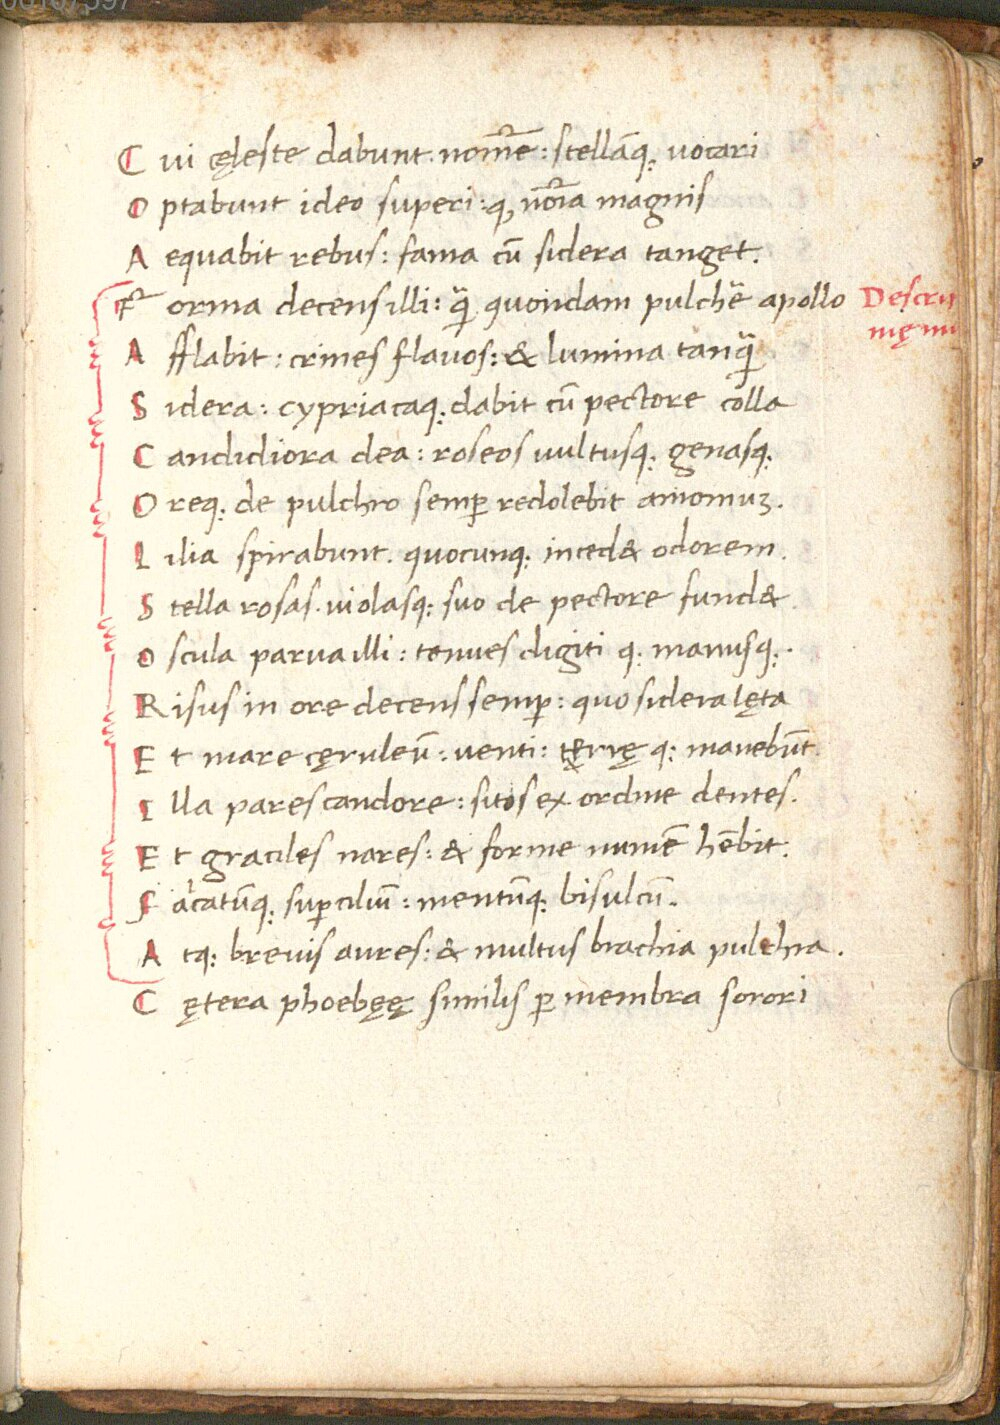 Cui cęleste dabunt. nom̃e : stellãq; vocari
Optabunt ideo superi : q, nom̃a magnis
Aequabit rebus : fama cũ sidera tanget.
Forma decens illi : q̃ quondam pulchẽ apollo
Descri
mę mu
Afflabit : crines flavos : & lumina tanq̃
Sidera : cypriacaq; dabit cũ pectore colla
Candidiora dea : roseos uultusq; genasq;
Oreq; de pulchro semp̱ redolebit amomuꝫ.
Lilia spirabunt. quocunq; inced& odorem.
Stella rosas. violasq; suo de pectore fund&
Oscula parua illi : tenues digiti q; manusq; .
Risus in ore decens semp̱ : quo sidera lęta
Et mare cęruleũ : venti : terrę q; manebũt.
Illa pares candore : sitos ex ordine dentes.
Et graciles nares : & forme numẽ hẽbit.
Farcatũq; sup̱ciliũ : mentũq; bisulcũ.
Atq; brevis aures : & multus brachia pulchra .
Cętera phoebęę similis p̱ membra sorori